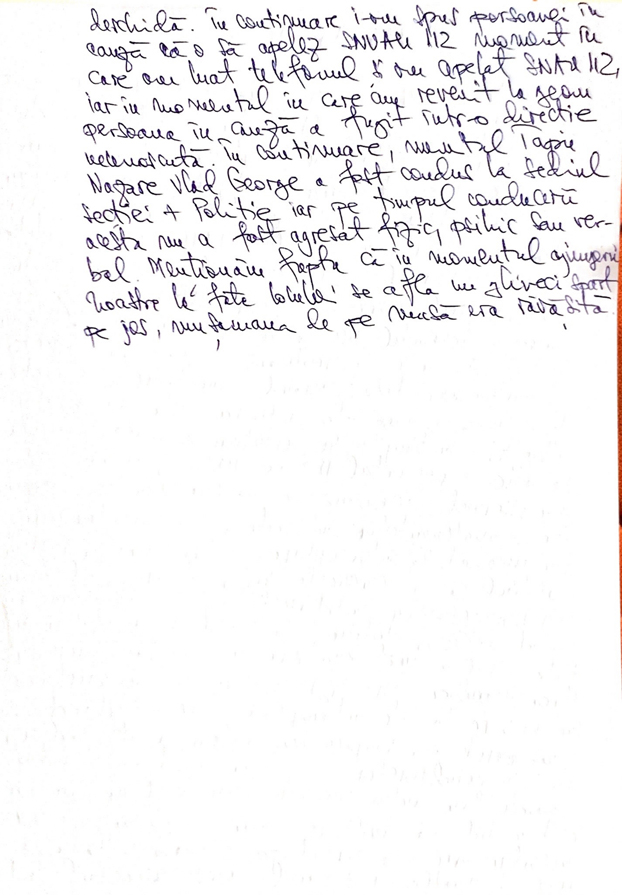 deschidă. În continuare i-am spus persoanei în
cauză că o să apelez SNUAU 112 moment în
care am luat telefonul și am apelat SNAU 112,
iar în momentul în care am revenit la geam
persoana în cauză a fugit într-o direcție
necunoscută. În continuare, numitul
Nagare Vlad George a fost condus la sediul
secției 7 Poliție iar pe timpul conducerii
acesta nu a fost agresat fizic, psihic sau ver-
bal. Menționăm faptu că în momentul ajungeri
noastre la fața locului se afla un ghiveci spart
pe jos, mușamaua de pe masă era răvășită.